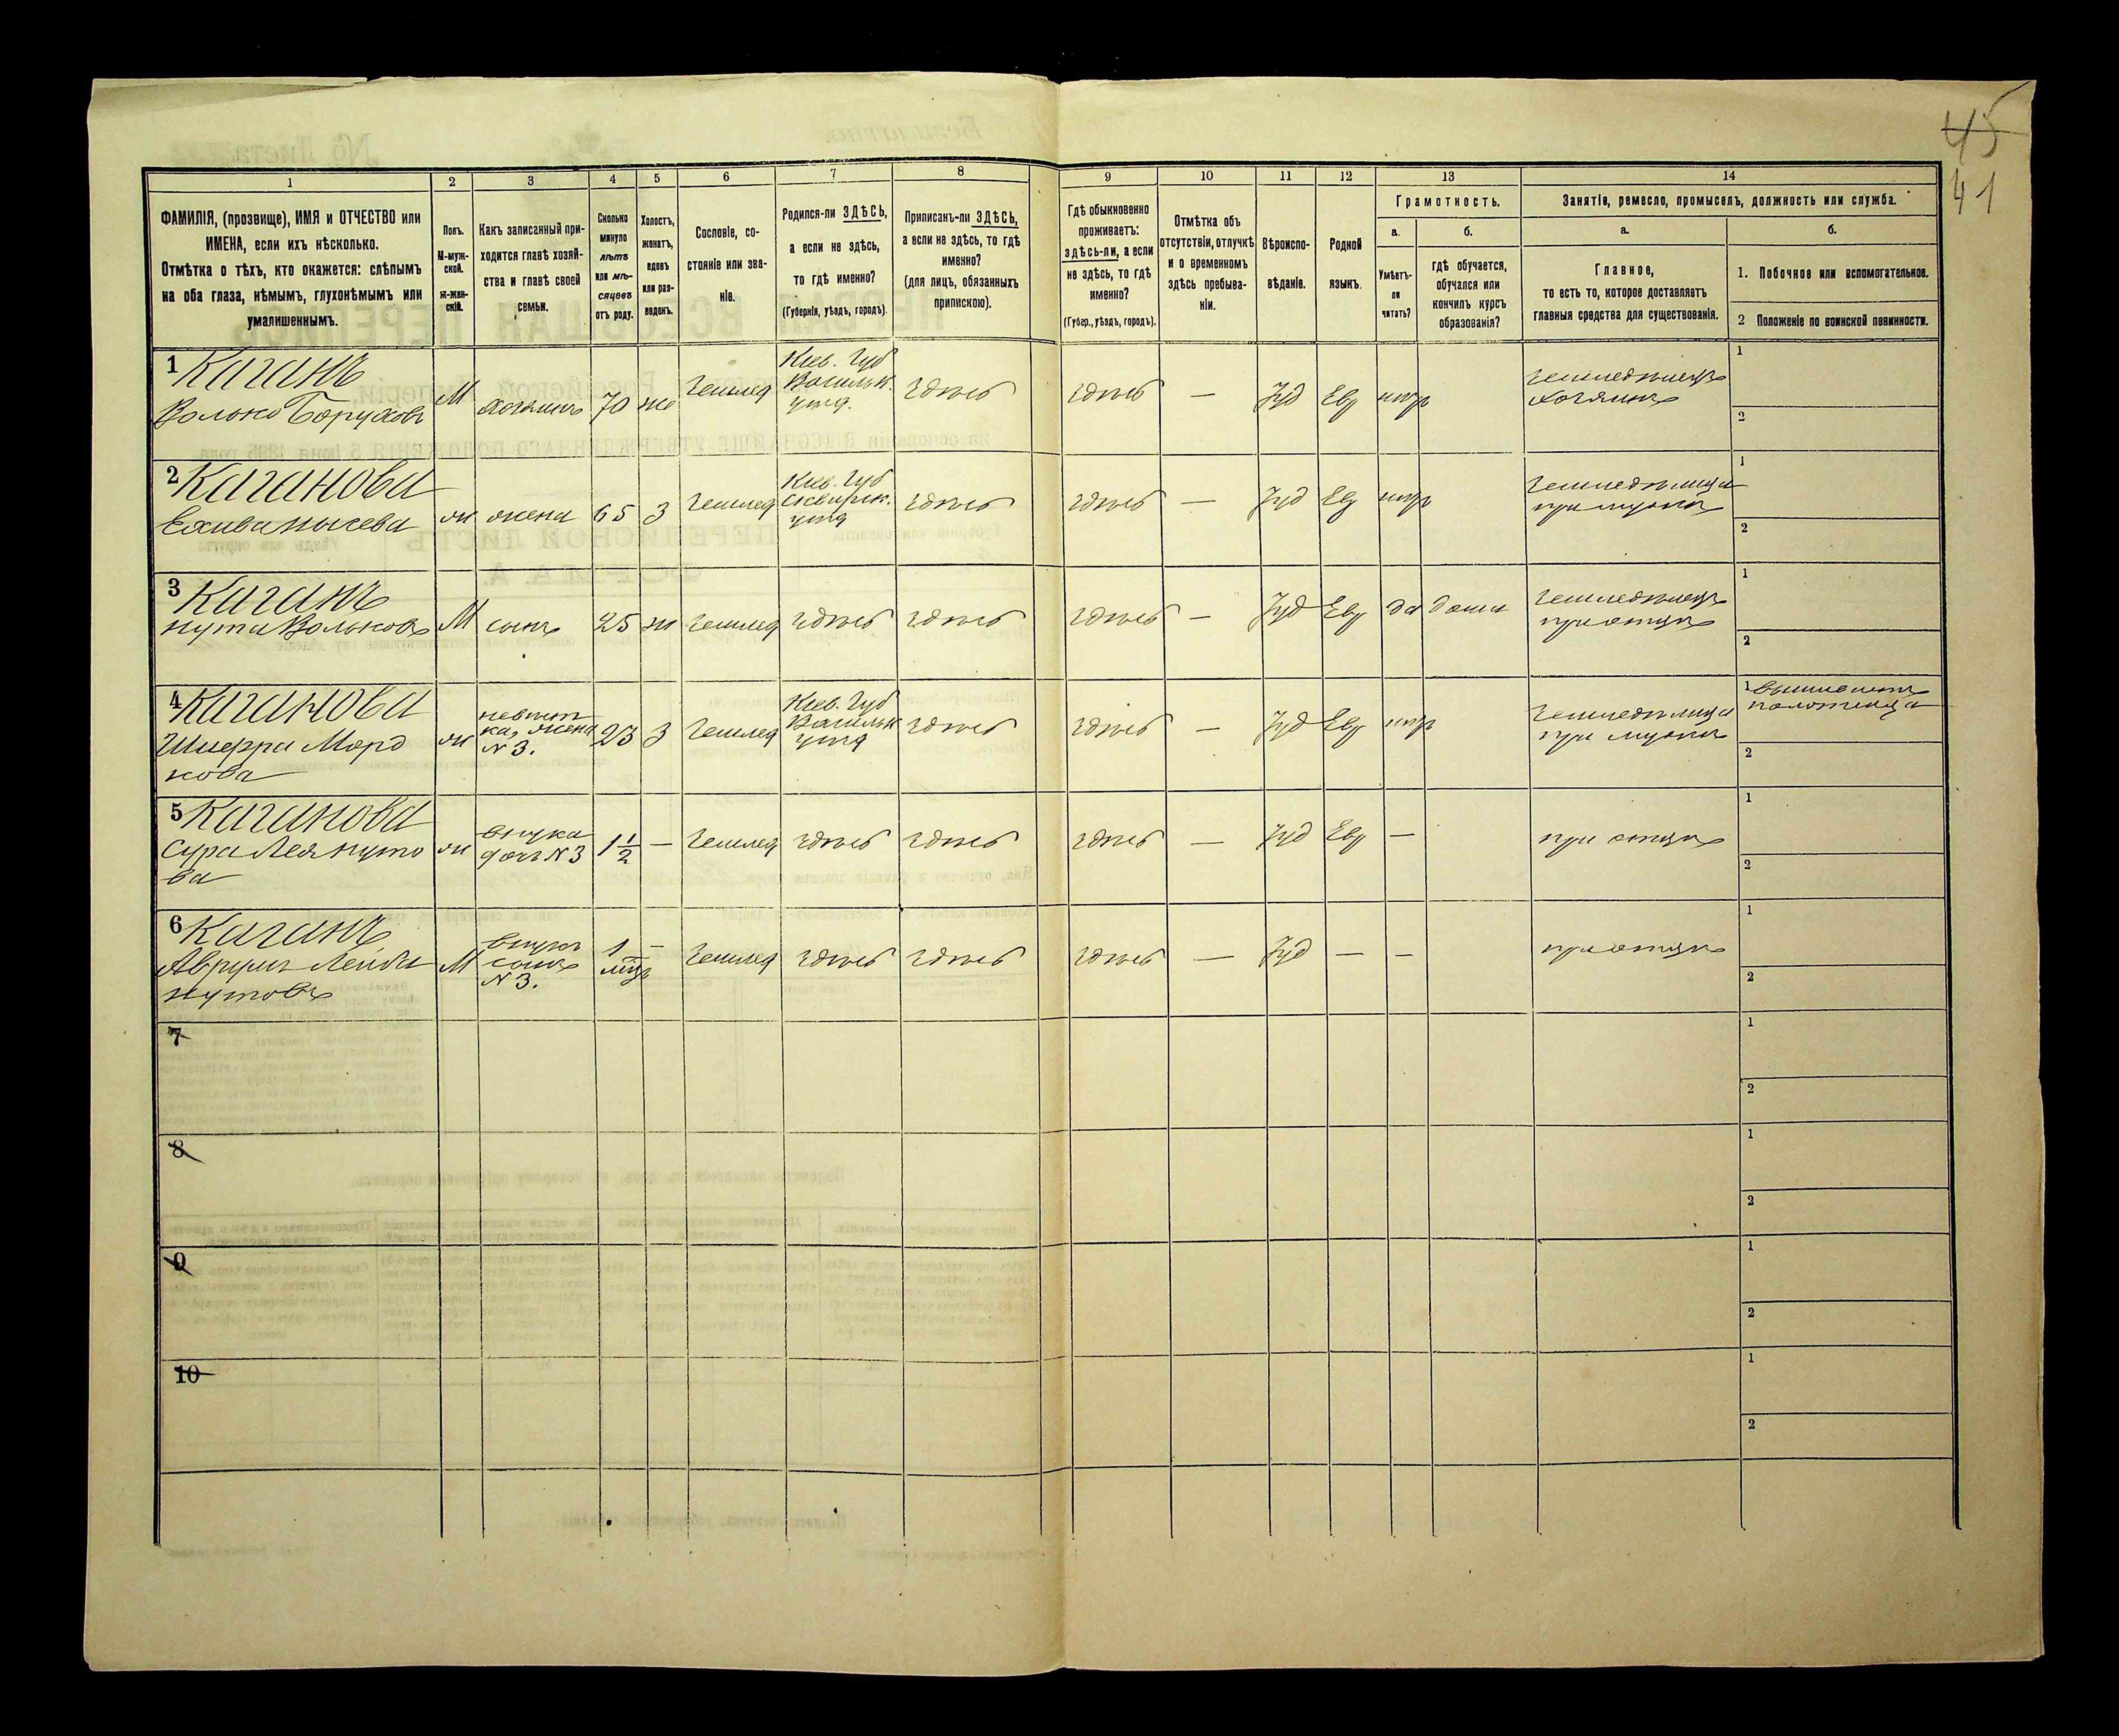 45
41
1
2
3
4
5
6
7
8
9
10
11
12
13
14
ФАМИЛІЯ, (прозвище), ИМЯ и ОТЧЕСТВО или
ИМЕНА, если ихъ нѣсколько.
Отмѣтка о тѣхъ, кто окажется: слѣпымъ
на оба глаза, нѣмымъ, глухонѣмымъ или
умалишеннымъ.
Полъ.
М-муж-
ской.
Ж-жен-
скій.
Какъ записанный при-
ходится главѣ хозяй-
ства и главѣ своей
семьи.
Сколько
минуло
лѣтъ
или мѣ-
сяцевъ
отъ роду.
Холостъ,
женатъ,
вдовъ
или раз-
веденъ.
Сословіе, со-
стояніе или зва-
ніе.
Родился-ли ЗДѢСЬ,
а если не здѣсь,
то гдѣ именно?
(Губернія, уѣздъ, городъ).
Приписанъ-ли ЗДѢСЬ,
а если не здѣсь, то гдѣ
именно?
(для лицъ, обязанныхъ
припискою).
Гдѣ обыкновенно
проживаетъ:
здѣсь-ли, а если
не здѣсь, то гдѣ
именно?
(Губер., уѣздъ, городъ).
Отмѣтка объ
отсутствіи, отлучкѣ
и о временномъ
здѣсь пребыва-
ніи.
Вѣроиспо-
вѣданіе.
Родной
языкъ.
Грамотность.
а.
Умѣетъ-
ли
читать?
б.
гдѣ обучается,
обучался или
кончилъ курсъ
образованія?
Занятіе, ремесло, промыселъ, должность или служба.
а.
Главное,
то есть то, которое доставляетъ
главныя средства для существованія.
б.
1. Побочное или вспомогательное.
2 Положеніе по воинской повинности.
1 Каганъ
Волько Боруховъ
М
хозяинъ
70
же
Землед
Кіев. Губ
Васильк.
уѣзд.
здѣсь
здѣсь
—
Іуд
Евр
нѣтъ
Земледѣлецъ
хозяинъ
1
2
2 Каганова
М
жена
65
З
Землед
Кіев. Губ
Сквирск.
уѣзд
здѣсь
здѣсь
—
Іуд
Евр
нѣтъ
Земледѣлица
при мужѣ
1
2
3 Каганъ
Нута Вольковъ
М
сынъ
25
ж
Землед
здѣсь
здѣсь
здѣсь
—
Іуд
Евр
да
дома
Земледѣлецъ
при отцѣ
1
2
4 Каганова
Шифра Морд
кова
ж
невѣст
ка, жена
N 3.
23
З
Землед
Кіев. Губ
Васильк
уѣзд
здѣсь
здѣсь
—
Іуд
Евр
нѣтъ
Земледѣлица
при мужѣ
1
2
5 Каганова
Сура Лея Нуто
ва
ж
внучка
дочь N 3
1 1/2
—
Землед
здѣсь
здѣсь
здѣсь
—
Іуд
Евр
—
при отцѣ
1
2
6 Каганъ
Аврумъ Лейба
Нутовъ
М
внукъ
сынъ
N 3.
1
мѣц
—
Землед
здѣсь
здѣсь
здѣсь
—
Іуд
—
—
при отцѣ
1
2
7
1
2
8
1
2
9
1
2
10
1
2